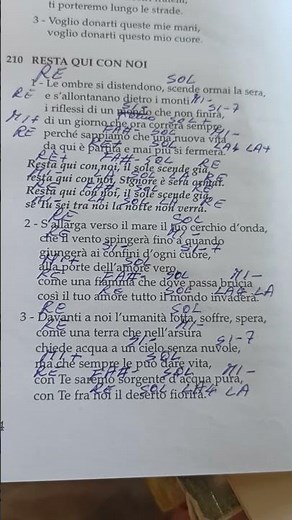 ti porteremo lungo le strade.
3 - Voglio donarti queste mie mani,
voglio donarti questo mio cuore.
210 RESTA QUI CON NOI
RE SOL
1 - Le ombre si distendono, scende ormai la sera,
RE MI-
e s'allontanano dietro i monti
SI-7
i riflessi di un giorno che non finirà,
MI+ SOL
di un giorno che ora correrà sempre,
RE FA#- SOL MI-
perché sappiamo che una nuova vita
LA4 LA+
da qui è partita e mai più si fermerà.
RE+ FA#- SOL RE
Resta qui con noi, il sole scende già,
resta qui con noi, Signore è sera ormai.
Resta qui con noi, il sole scende già,
LA SOL RE
se Tu sei tra noi la notte non verrà.
RE SOL
2 - S'allarga verso il mare il tuo cerchio d'onda,
RE MI-
che il vento spingerà fino a quando
SI-7
giungerà ai confini d'ogni cuore,
alle porte dell'amore vero.
MI-
come una fiamma che dove passa brucia
RE SOL LA4 LA
così il tuo amore tutto il mondo invaderà.
RE SOL
3 - Davanti a noi l'umanità lotta, soffre, spera,
RE MI-
come una terra che nell'arsura
SI- SI-7
chiede acqua a un cielo senza nuvole,
MI+ SOL
ma che sempre le può dare vita,
RE FA#- SOL MI-
con Te saremo sorgente d'acqua pura,
RE SOL LA4 LA
con Te fra noi il deserto fiorirà.